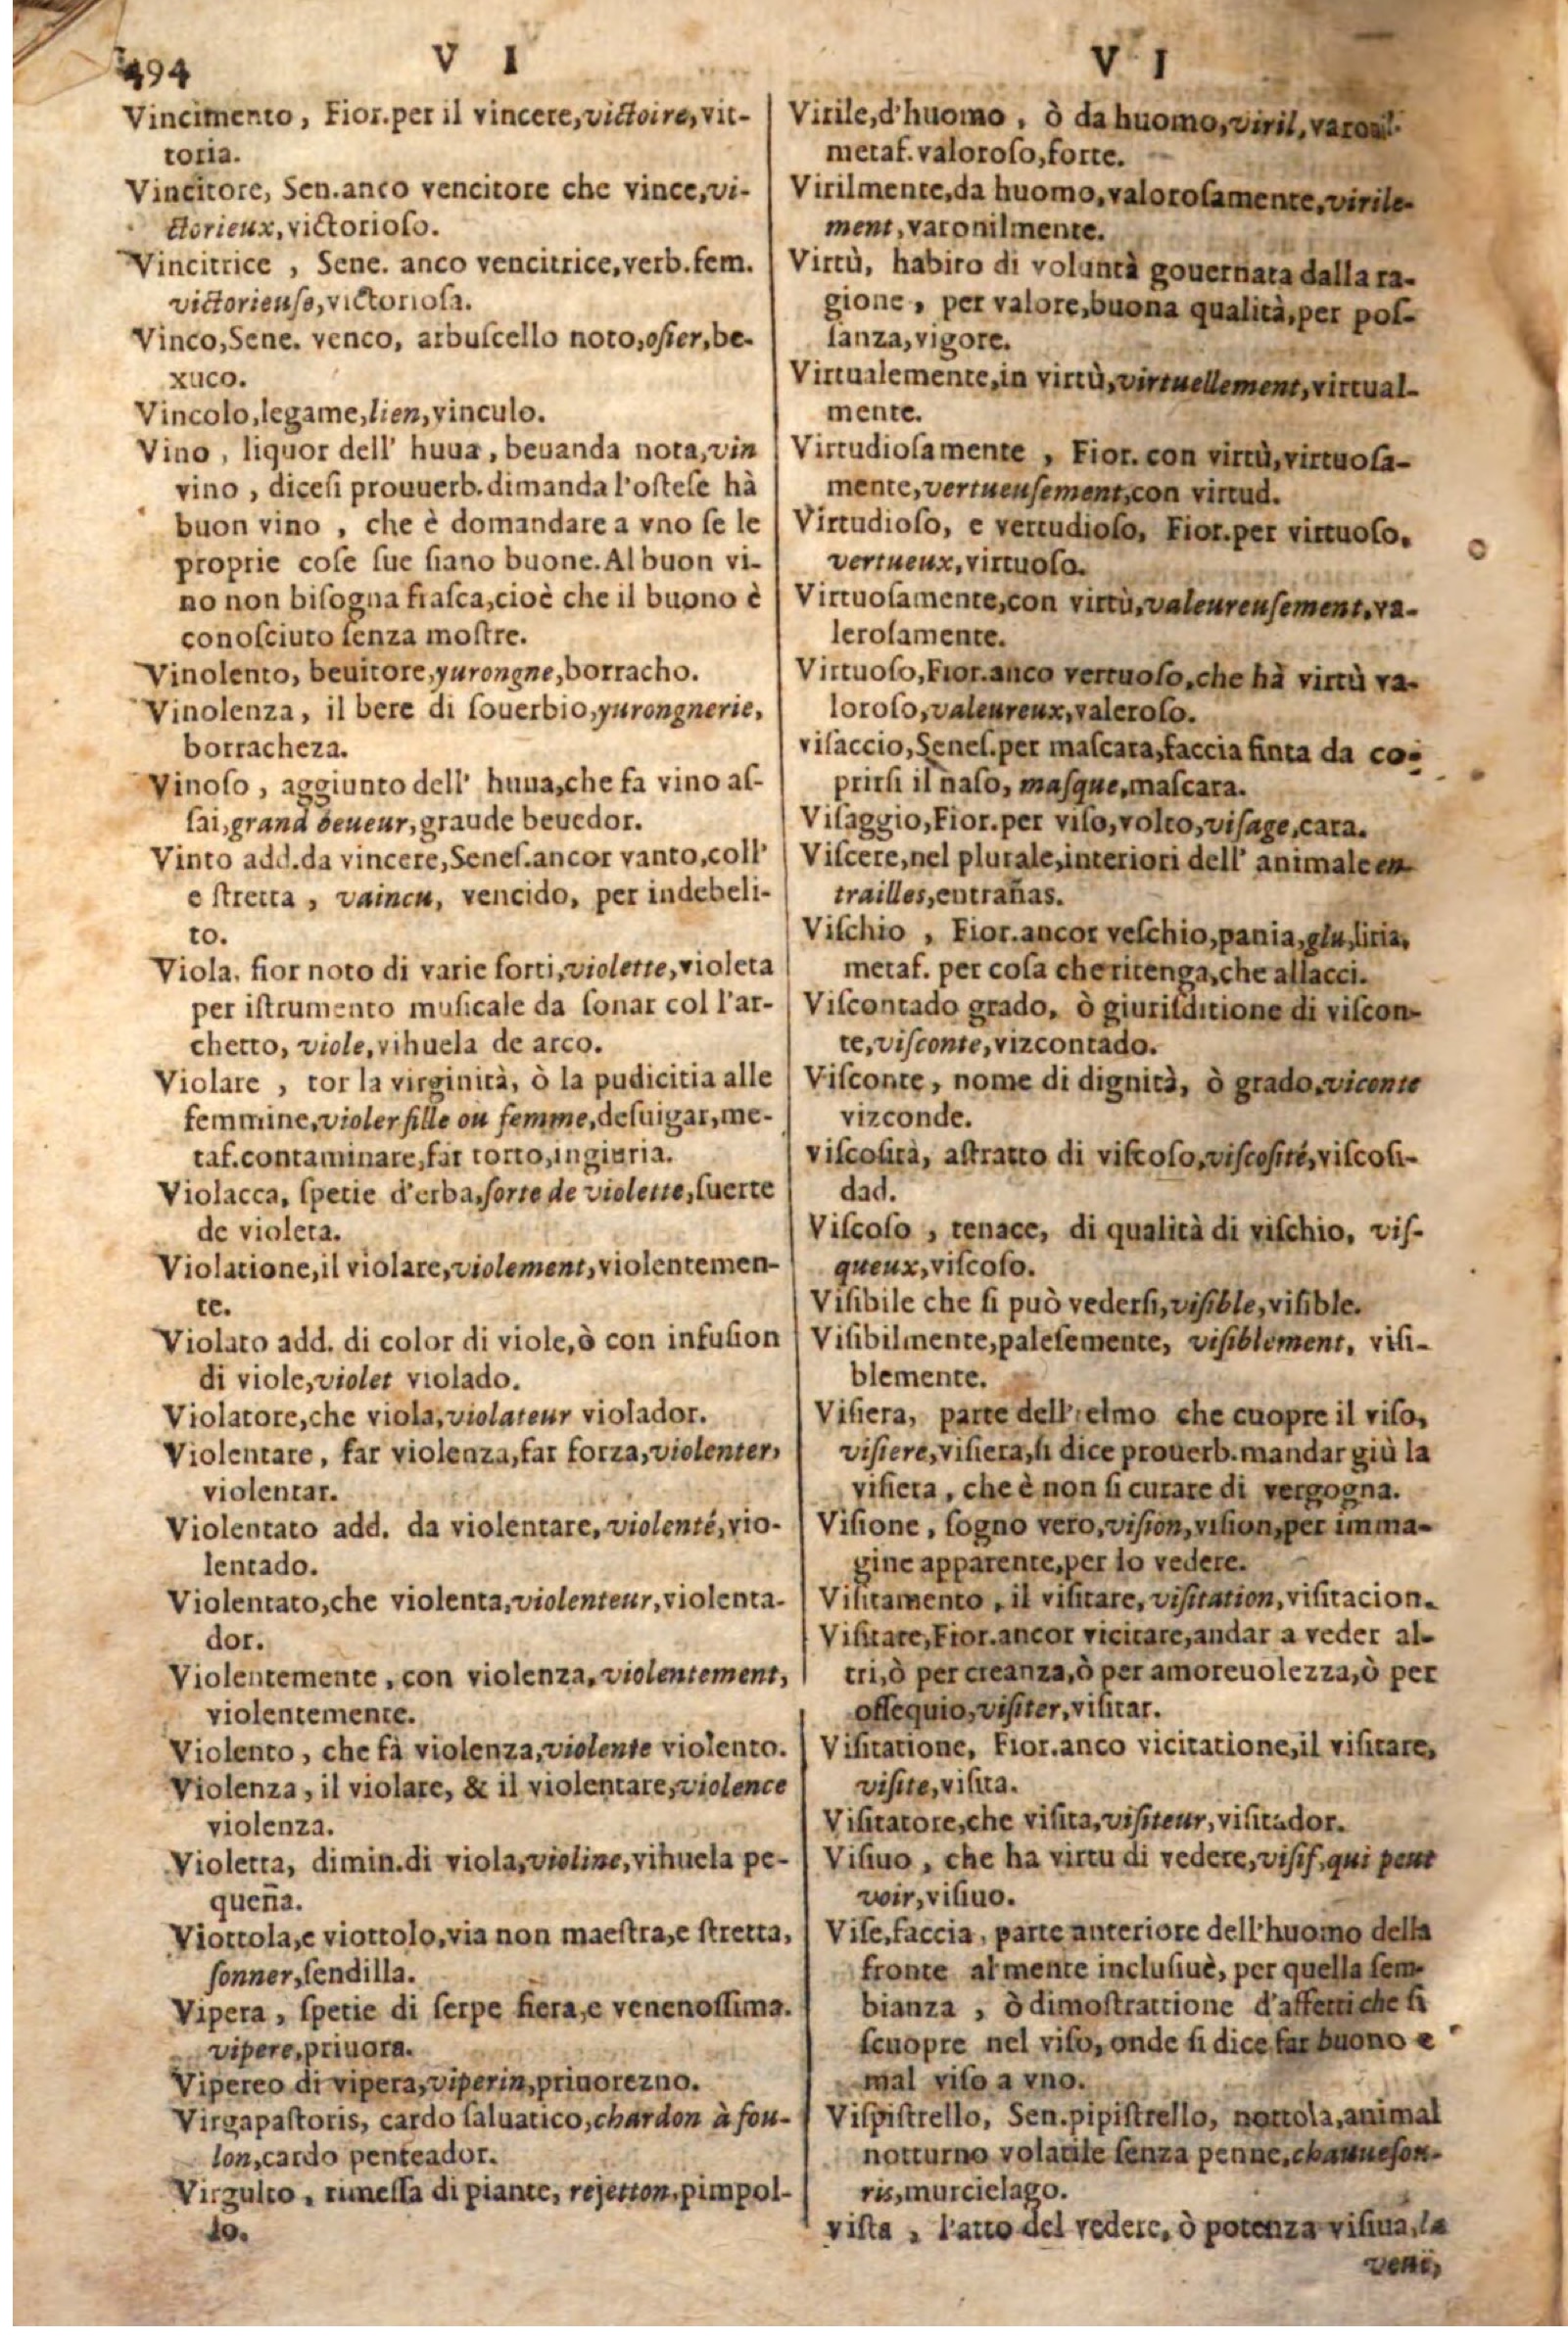 494
V I
Vincimento, Fior.per il vincere,victoire,vit-
toria.
Vincitore, Sen.anco vencitore che vince,vi-
ctorieux,victorioſo.
Vincitrice , Sene. anco vencitrice,verb.fem.
victorieuſe,victorioſa.
Vinco,Sene. venco, arbuſcello noto,oſier,be-
xuco.
Vincolo,legame,lien,vinculo.
Vino , liquor dell' huua , beuanda nota,vin
vino , diceſi prouuerb.dimanda l'oſteſe hà
buon vino , che è domandare a vno ſe le
proprie coſe ſue ſiano buone.Al buon vi-
no non biſogna fraſca,cioè che il buono è
conoſciuto ſenza moſtre.
Vinolento, beuitore,yurongne,borracho.
Vinolenza, il bere di ſouerbio,yurongnerie,
borracheza.
Vinoſo , aggiunto dell' huua,che fa vino aſ-
ſai,grand beueur,graude beuedor.
Vinto add.da vincere,Seneſ.ancor vanto,coll'
e ſtretta , vaincu, vencido, per indebeli-
to.
Viola, fior noto di varie ſorti,violette,violeta
per iſtrumento muſicale da ſonar col l'ar-
chetto, viole,vihuela de arco.
Violare , tor la virginità, ò la pudicitia alle
femmine,violer fille ou femme,deſuigar,me-
taf.contaminare,far torto,ingiuria.
Violacca, ſpetie d'erba,ſorte de violette,ſuerte
de violeta.
Violatione,il violare,violement,violentemen-
te.
Violato add. di color di viole,ò con infuſion
di viole,violet violado.
Violatore,che viola,violateur violador.
Violentare , far violenza,far forza,violenter,
violentar.
Violentato add. da violentare, violenté,vio-
lentado.
Violentato,che violenta,violenteur,violenta-
dor.
Violentemente , con violenza,violentement,
violentemente.
Violento , che fà violenza,violente violento.
Violenza , il violare, & il violentare,violence
violenza.
Violetta, dimin.di viola,violine,vihuela pe-
queña.
Viottola,e viottolo,via non maeſtra,e ſtretta,
ſonner,ſendilla.
Vipera , ſpetie di ſerpe fiera,e venenoſſima.
vipere,priuora.
Vipereo di vipera,viperin,priuorezno.
Virgapaſtoris, cardo ſaluatico,chardon à fou-
lon,cardo penteador.
Virgulto , rimeſſa di piante, rejetton,pimpol-
lo.
V I
Virile,d'huomo , ò da huomo,viril,varonil.
metaf.valoroſo,forte.
Virilmente,da huomo,valoroſamente,virile-
ment,varonilmente.
Virtù, habito di voluntà gouernata dalla ra-
gione , per valore,buona qualità,per poſ-
ſanza,vigore.
Virtualemente,in virtù,virtuellement,virtual-
mente.
Virtudioſamente , Fior. con virtù,virtuoſa-
mente,vertueuſement,con virtud.
Virtudioſo, e vertudioſo, Fior.per virtuoſo,
vertueux,virtuoſo.
Virtuoſamente,con virtù,valeureuſement,va-
leroſamente.
Virtuoſo,Fior.anco vertuoſo,che hà virtù va-
loroſo,valeureux,valeroſo.
viſaccio,Seneſ.per maſcara,faccia finta da co-
prirſi il naſo, maſque,maſcara.
Viſaggio,Fior.per viſo,volto,viſage,cara.
Viſcere,nel plurale,interiori dell' animale en-
trailles,entrañas.
Viſchio , Fior.ancor veſchio,pania,glu,liria,
metaf. per coſa che ritenga,che allacci.
Viſcontado grado, ò giuriſditione di viſcon-
te,viſconte,vizcontado.
Viſconte , nome di dignità, ò grado,viconte
vizconde.
viſcoſità, aſtratto di viſcoſo,viſcoſité,viſcoſi-
dad.
Viſcoſo , tenace, di qualità di viſchio, viſ-
queux,viſcoſo.
Viſibile che ſi può vederſi,viſible,viſible.
Viſibilmente,paleſemente, viſiblement, viſi-
blemente.
Viſiera, parte dell' elmo che cuopre il viſo,
viſiere,viſiera,ſi dice prouerb.mandar giù la
viſiera , che è non ſi curare di vergogna.
Viſione , ſogno vero,viſion,viſion,per imma-
gine apparente,per lo vedere.
Viſitamento , il viſitare, viſitation,viſitacion.
Viſitare,Fior.ancor vicitare,andar a veder al-
tri,ò per creanza,ò per amoreuolezza,ò per
oſſequio,viſiter,viſitar.
Viſitatione, Fior.anco vicitatione,il viſitare,
viſite,viſita.
Viſitatore,che viſita,viſiteur,viſitador.
Viſiuo , che ha virtu di vedere,viſif,qui peut
voir,viſiuo.
Viſe,faccia, parte anteriore dell'huomo della
fronte al mente incluſiuè, per quella ſem-
bianza , ò dimoſtrattione d'affetti che ſi
ſcuopre nel viſo, onde ſi dice far buono e
mal viſo a vno.
Viſpiſtrello, Sen.pipiſtrello, nottola,animal
notturno volatile ſenza penne,chauueſou-
ris,murcielago.
viſta , l'atto del vedere, ò potenza viſiua,la